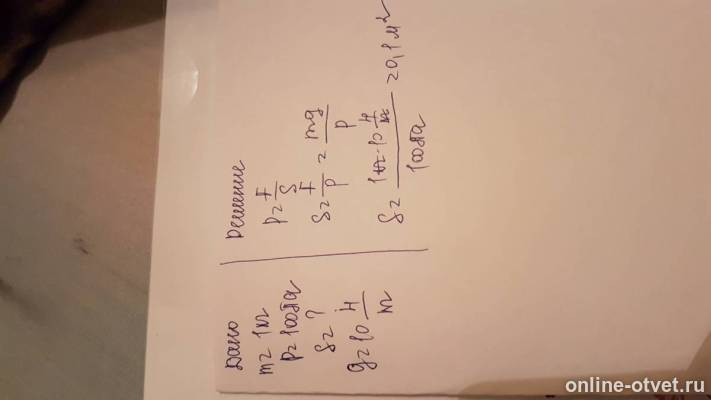 Дано
m = 1 кг
p = 100 Па
S = ?
g = 10 Н/кг
Решение
p = F/S
S = F/p = mg/p
S = 1 кг · 10 Н/кг / 100 Па = 0,1 м²
online-otvet.ru